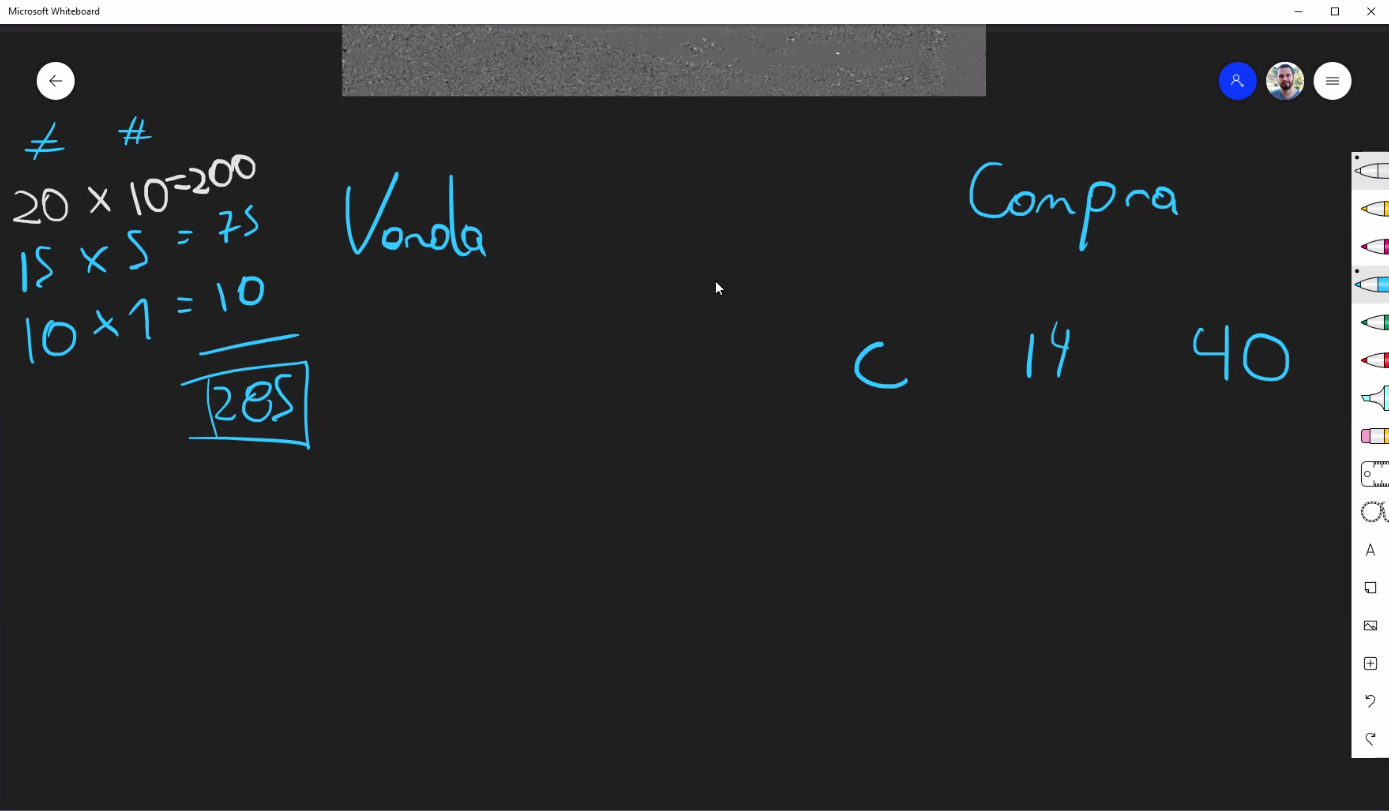 Microsoft Whiteboard
≠ #
20 × 10 = 200
15 × 5 = 75
10 × 1 = 10
285
Venda
Compra
C 14 40
A